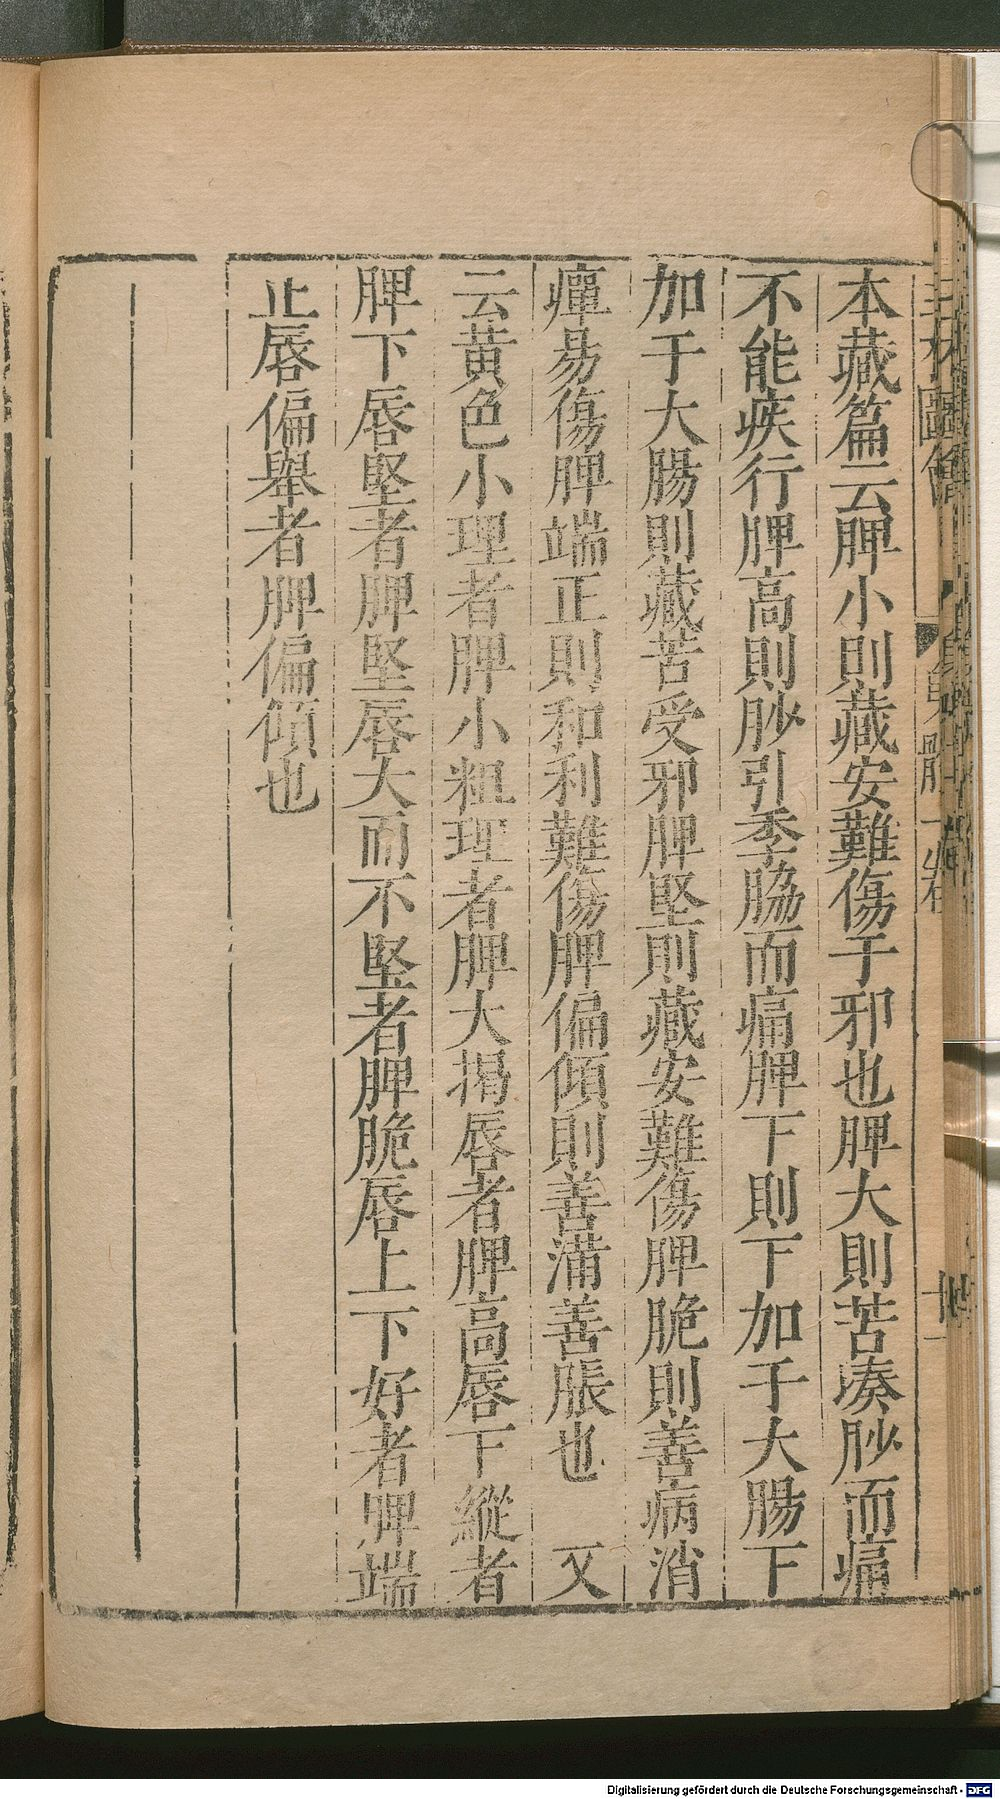 本藏篇云脾小則藏安難傷于邪也脾大則苦湊䏚而痛
不能疾行脾高則䏚引季脇而痛脾下則下加于大腸下
加于大腸則藏苦受邪脾堅則藏安難傷脾脆則善病消
癉易傷脾端正則和利難傷脾偏傾則善滿善脹也　又
云黃色小理者脾小粗理者脾大揭唇者脾高唇下縱者
脾下唇堅者脾堅唇大而不堅者脾脆唇上下好者脾端
正唇偏舉者脾偏傾也
三才圖會
身體一卷
Digitalisierung gefördert durch die Deutsche Forschungsgemeinschaft - DFG